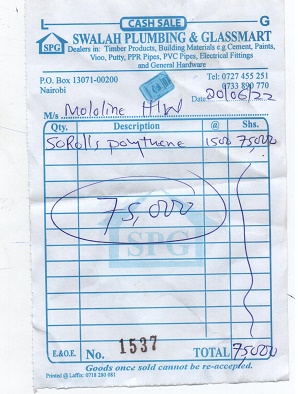 L CASH SALE G
SPG
SWALAH PLUMBING & GLASSMART
Dealers in: Timber Products, Building Materials e.g Cement, Paints,
Vioo, Putty, PPR Pipes, PVC Pipes, Electrical Fittings
and General Hardware
P.O. Box 13071-00200
Nairobi
Tel: 0727 455 251
0733 890 770
Date: 20/06/22
M/s Mololine H/W
Qty. Description @ Shs.
50 Rolls polythene 1500 75000
75,000
SPG
E.&O.E. No. 1537 TOTAL 75000
Goods once sold cannot be re-accepted.
Printed @ Laffix: 0718 280 981